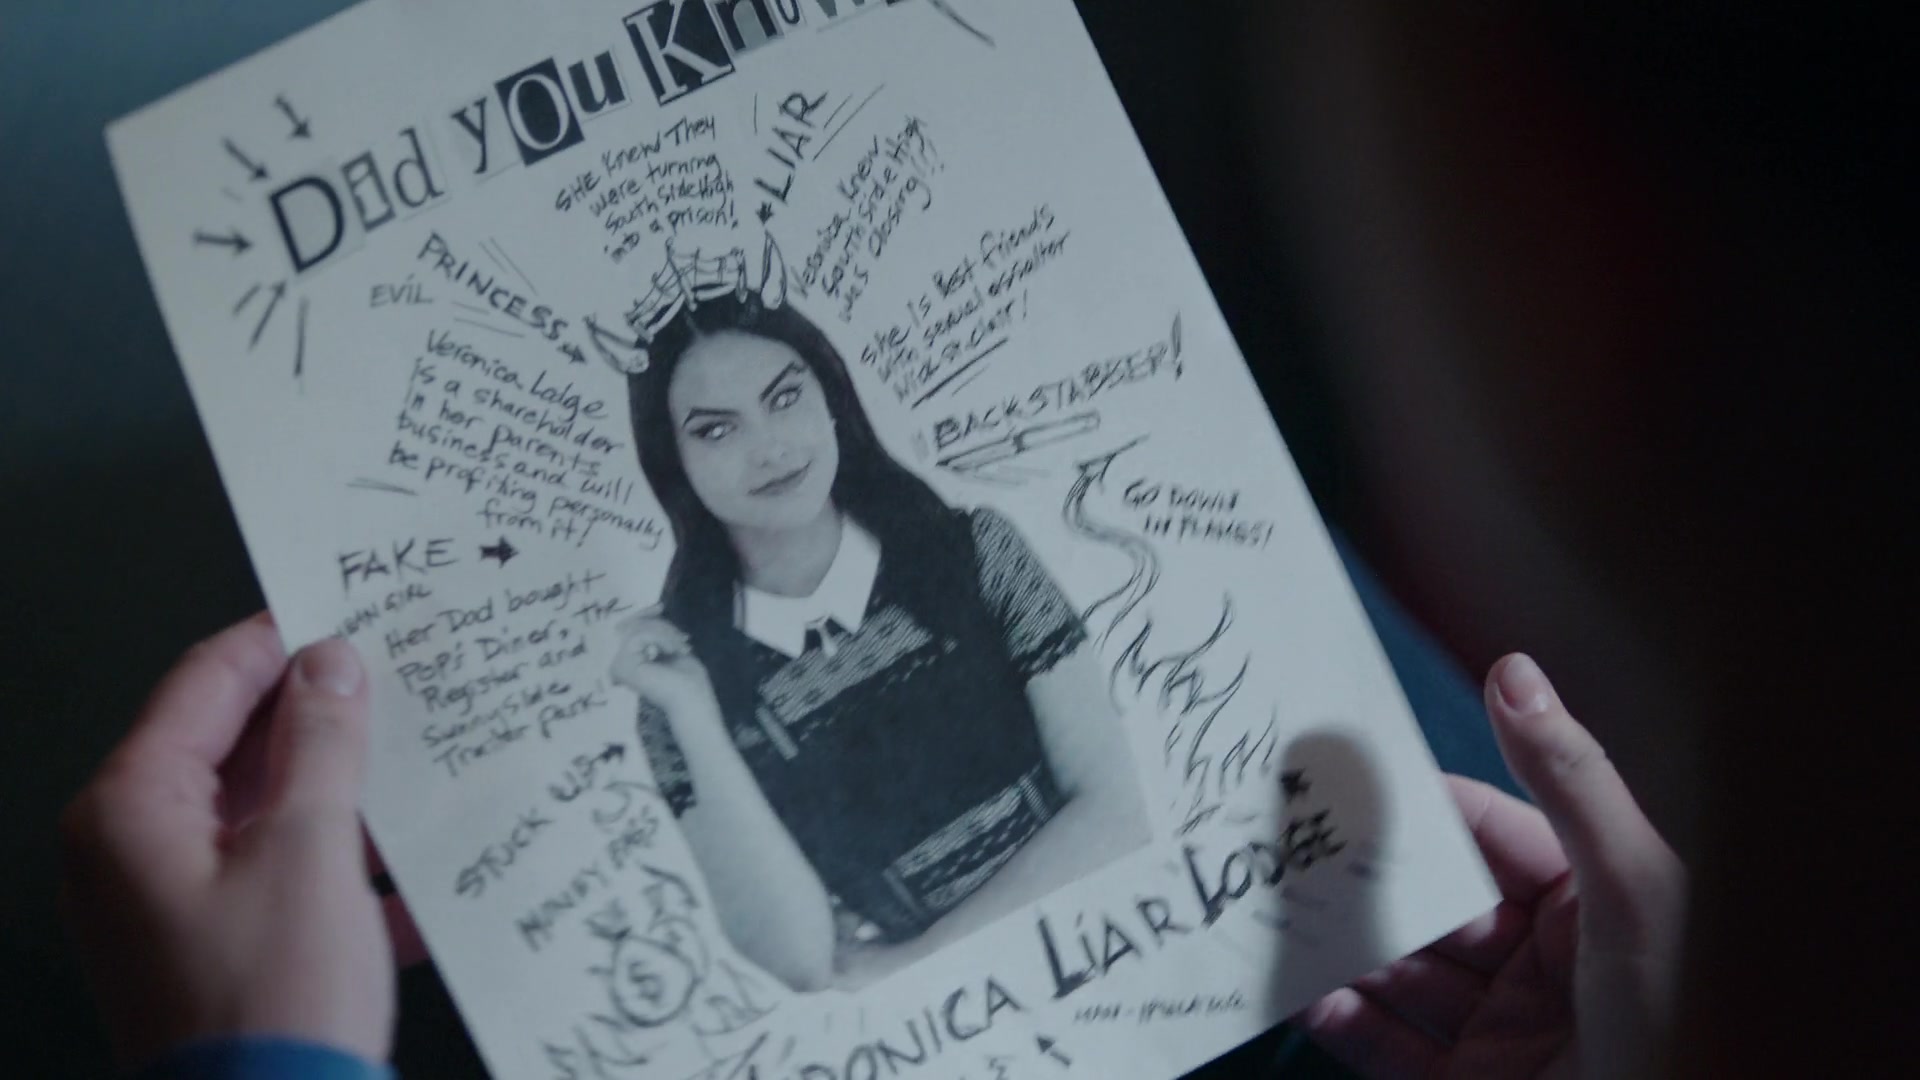 Did you Know
SHE Knew They
were turning
South side High
into a prison!
LIAR
Veronica knew
South side High
was closing!?!
She Is Best friends
with serial assaulter
Nick St. Clair!
PRINCESS
EVIL
Veronica Lodge
is a shareholder
in her parents
business and will
be profiting personally
from it!
BACKSTABBER!
GO DOWN
IN FLAMES!
FAKE
Her Dad bought
Pop's Diner, The
Register and
Sunnyside
Trailer Park!
STUCK UP
MONEY
$
VERONICA LIAR LODGE